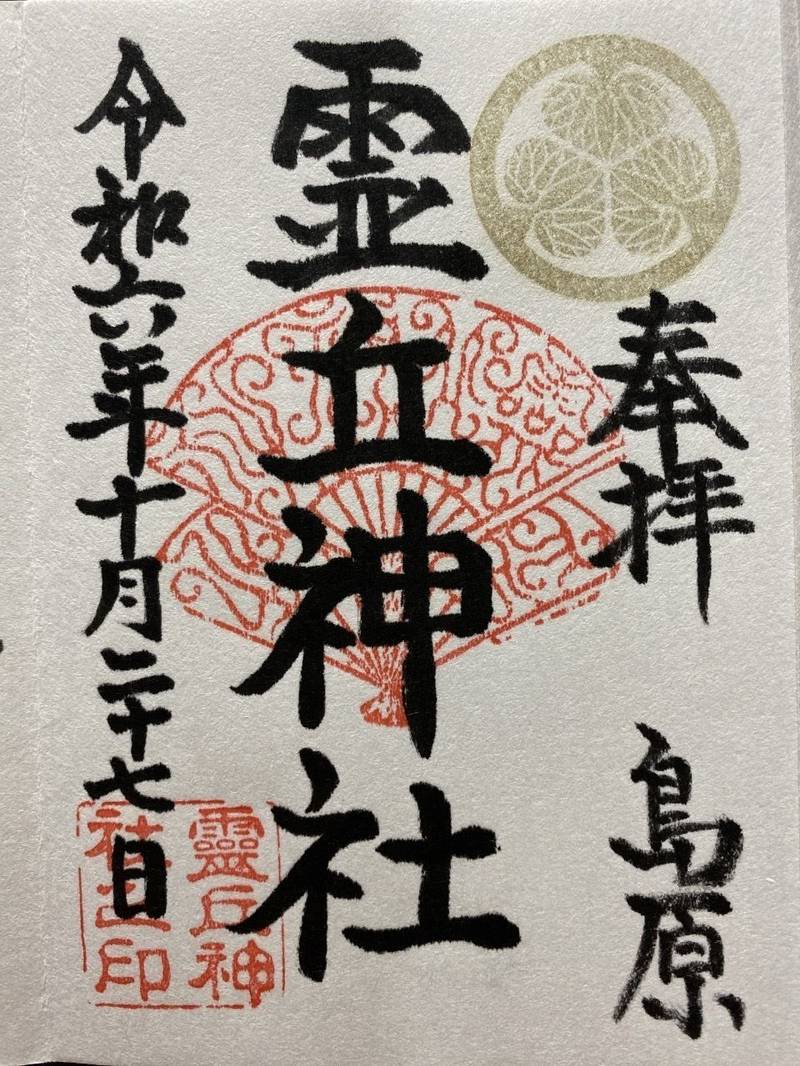 奉拝
島原
霊丘神社
令和六年十月二十七日
靈丘神
社之印